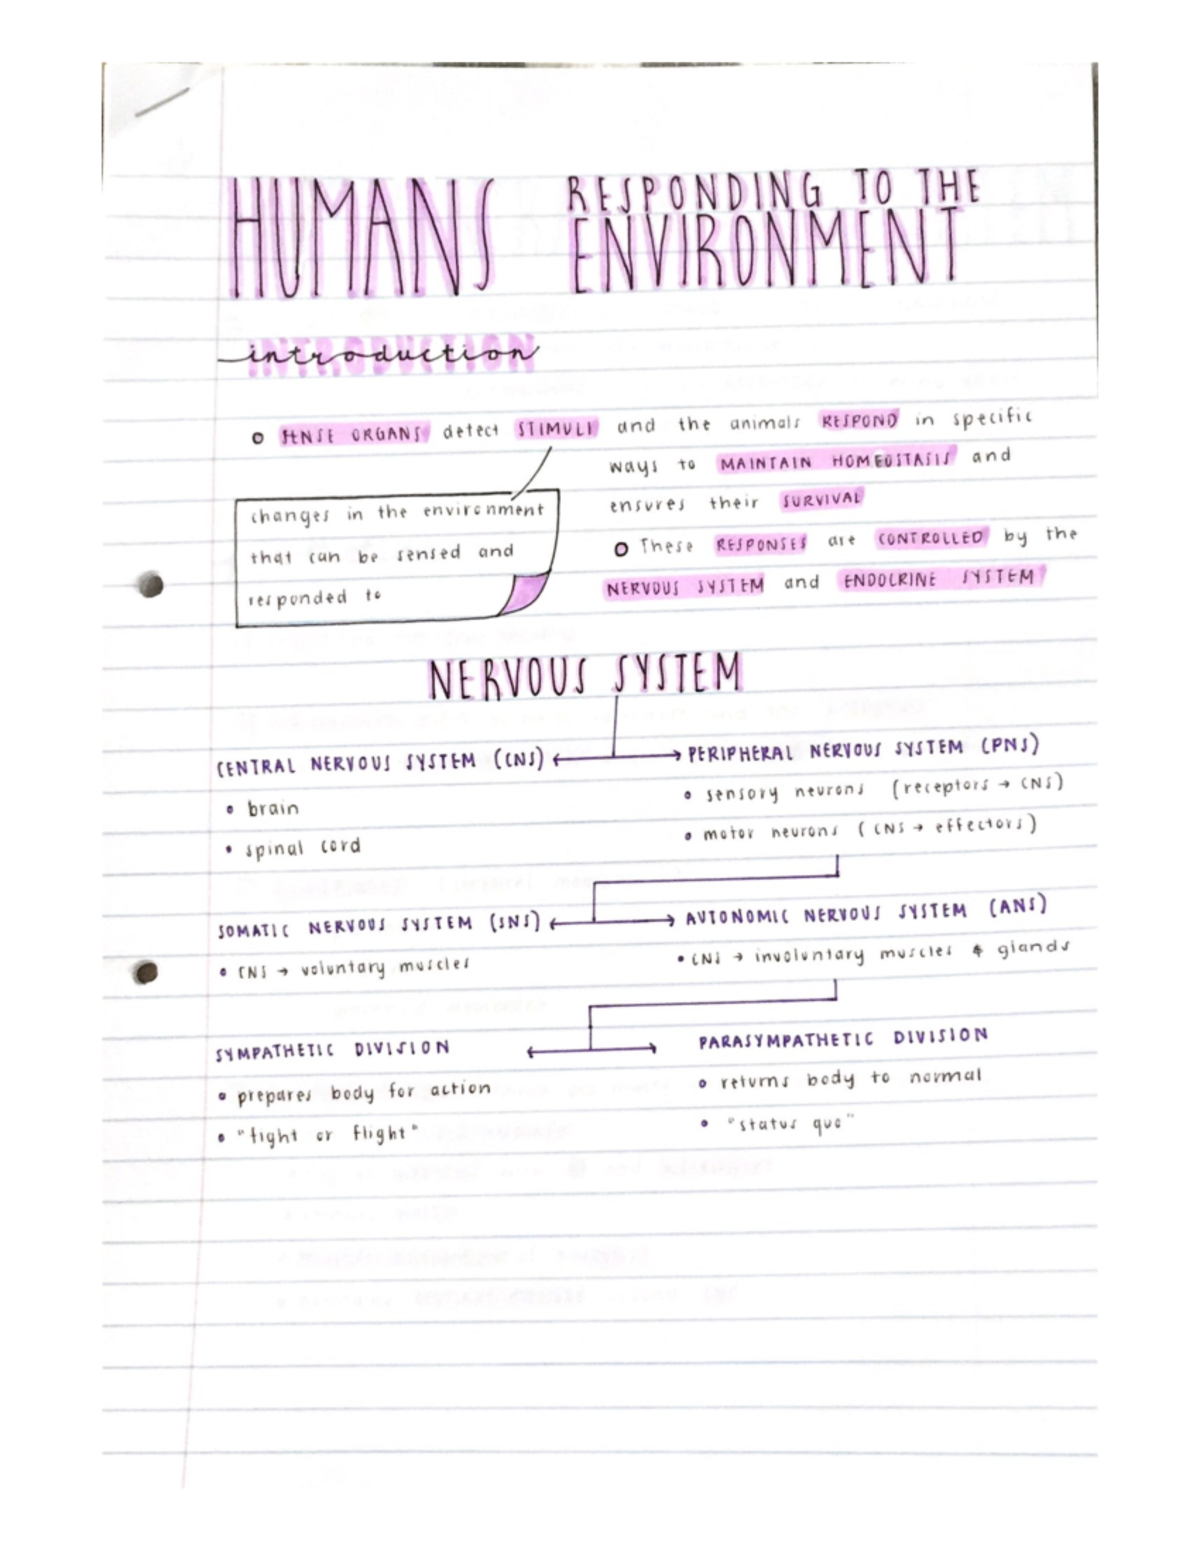 HUMANS RESPONDING TO THE
ENVIRONMENT
introduction
SENSE ORGANS detect STIMULI and the animals RESPOND in specific
ways to MAINTAIN HOMEOSTASIS and
ensures their SURVIVAL
changes in the environment
that can be sensed and
responded to
These RESPONSES are CONTROLLED by the
NERVOUS SYSTEM and ENDOCRINE SYSTEM
NERVOUS SYSTEM
CENTRAL NERVOUS SYSTEM (CNS) ←→ PERIPHERAL NERVOUS SYSTEM (PNS)
• brain
• spinal cord
• sensory neurons (receptors → CNS)
• motor neurons (CNS → effectors)
SOMATIC NERVOUS SYSTEM (SNS) ←→ AUTONOMIC NERVOUS SYSTEM (ANS)
• CNS → voluntary muscles
• CNS → involuntary muscles & glands
SYMPATHETIC DIVISION ←→ PARASYMPATHETIC DIVISION
• prepares body for action
• "fight or flight"
• returns body to normal
• "status quo"